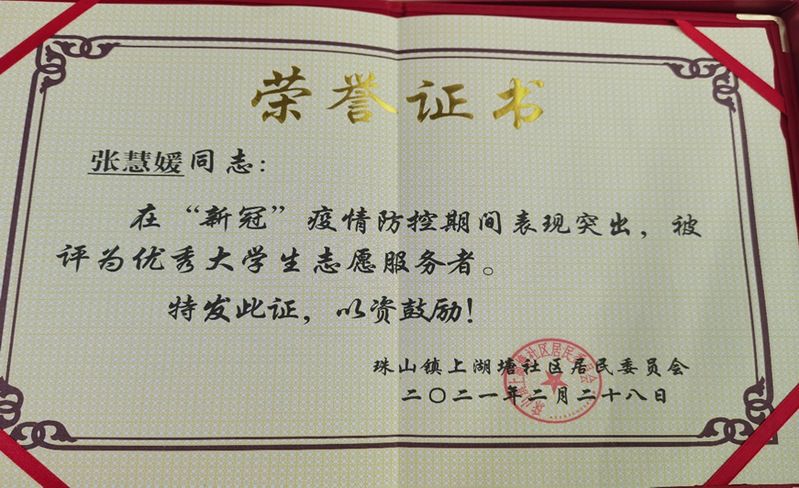 荣誉证书
张慧媛同志：
在“新冠”疫情防控期间表现突出，被
评为优秀大学生志愿服务者。
特发此证，以资鼓励！
珠山镇上湖塘社区居民委员会
二〇二一年二月二十八日